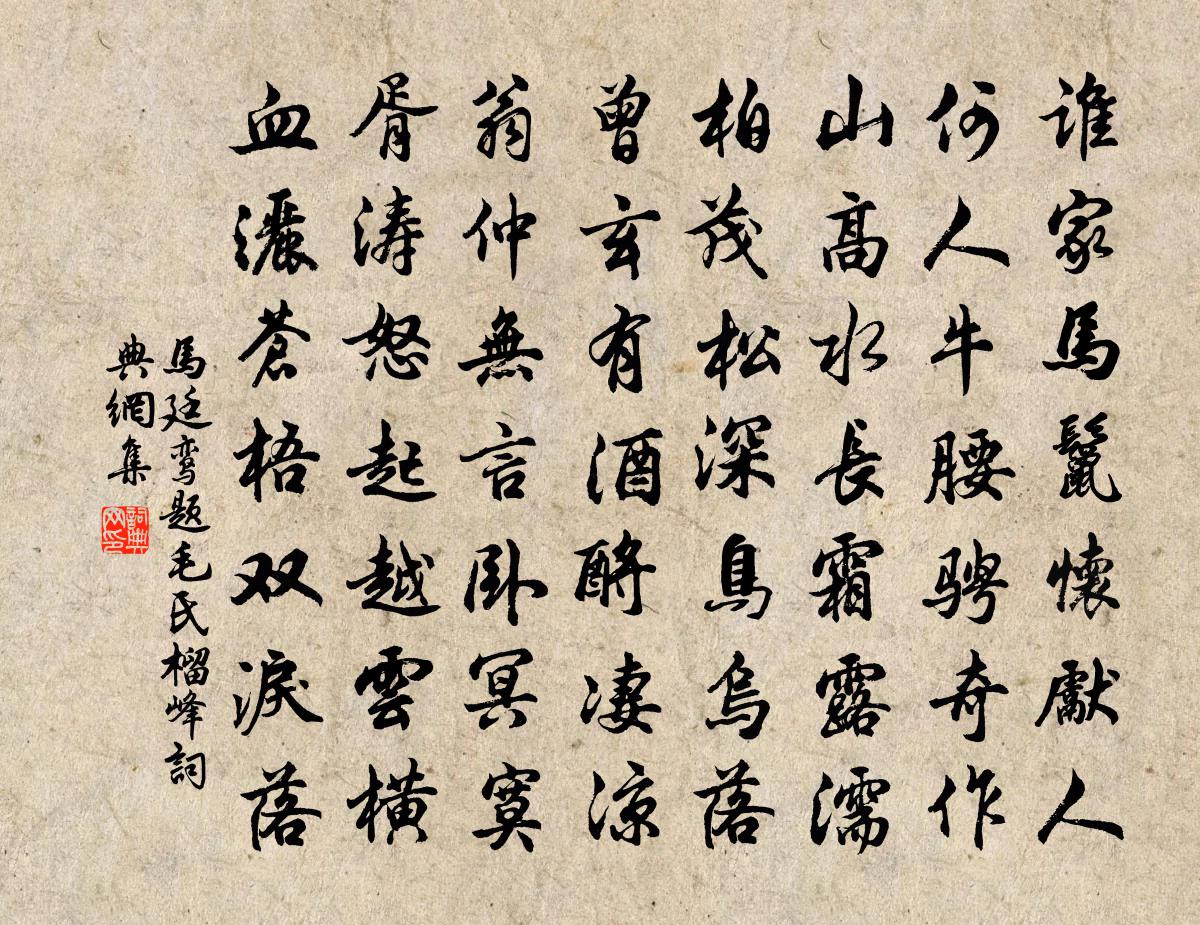 谁家馬鬣懷獻人
何人牛腰骋奇作
山高水長霜露濡
柏茂松深鳥烏落
曾玄有酒酹凄凉
翁仲無言卧冥寞
胥涛怒起越雲橫
血灑蒼梧双淚落
馬廷鸾題毛氏榴峰詞
典網集
詞典网印